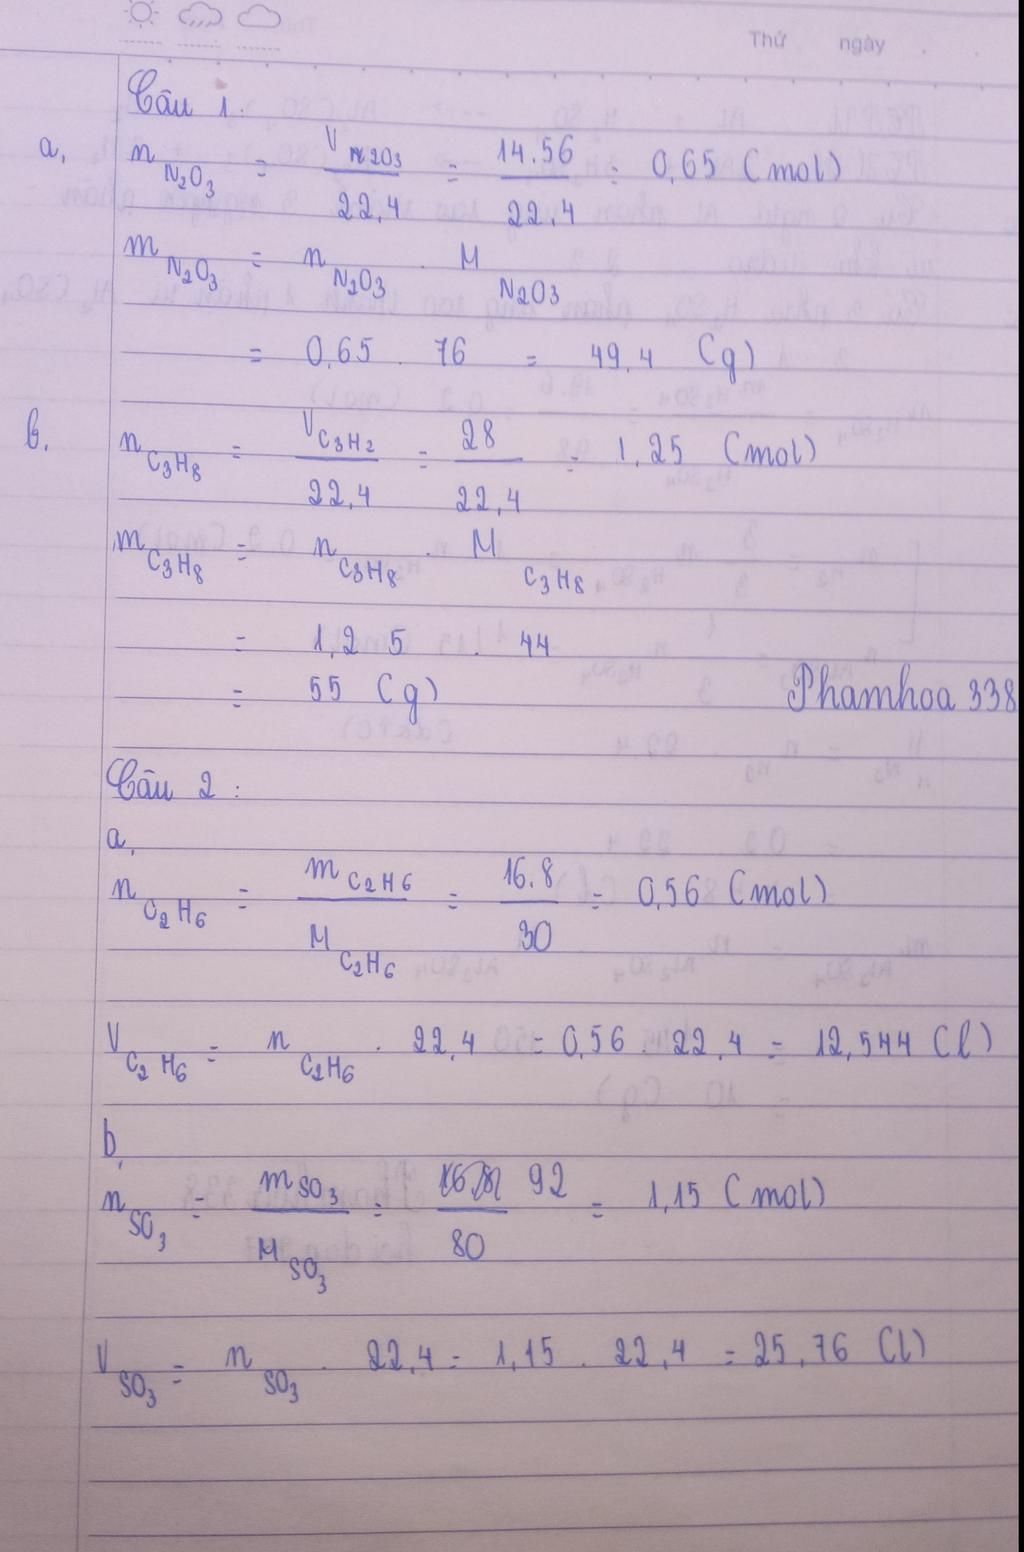 Thứ ngày
Câu 1.
a, n N₂O₃ = V N2O3 / 22,4 = 14.56 / 22,4 = 0,65 (mol)
m N₂O₃ = n N₂O₃ . M N₂O₃
= 0,65 . 76 = 49,4 (g)
b. n C₃H₈ = V C₃H₂ / 22,4 = 28 / 22,4 = 1,25 (mol)
m C₃H₈ = n C₃H₈ . M C₃H₈
= 1,25 . 44
= 55 (g) Phamhoa 338
Câu 2 :
a,
n C₂H₆ = m C₂H₆ / M C₂H₆ = 16.8 / 30 = 0,56 (mol)
V C₂H₆ = n C₂H₆ . 22,4 = 0,56 . 22,4 = 12,544 (l)
b,
n SO₃ = m SO₃ / M SO₃ = 92 / 80 = 1,15 (mol)
V SO₃ = n SO₃ . 22,4 = 1,15 . 22,4 = 25,76 (l)